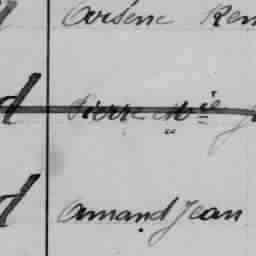 Arsène Ren
d Pierre Mie J
d Amand Jean